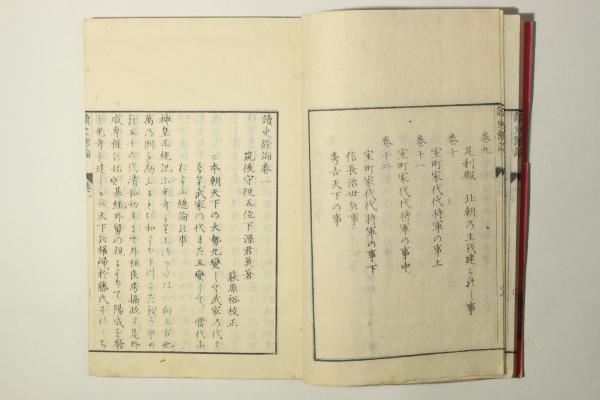 卷九
足利殿 北朝乃主を建られし事
卷十
室町家代代將軍の事上
卷十一
室町家代代將軍の事中
卷十二
室町家代代將軍の事下
信長治世の事
秀吉天下の事
讀史餘論卷一
筑後守從五位下源君美著
萩原裕校正
○本朝天下の大勢九變して武家の代となり
武家の代また五變して當代に
總論の事
神皇正統記に光孝より上つかたは一向上古也
萬の例を勘ふるも仁和より下つかたをぞ申める
五十六代清和幼主にて外祖良房攝政す是外
戚專權の始
基經外舅の親によりて陽成を廢し
光孝を建しかば天下の權藤氏に歸す
讀史餘論 卷一